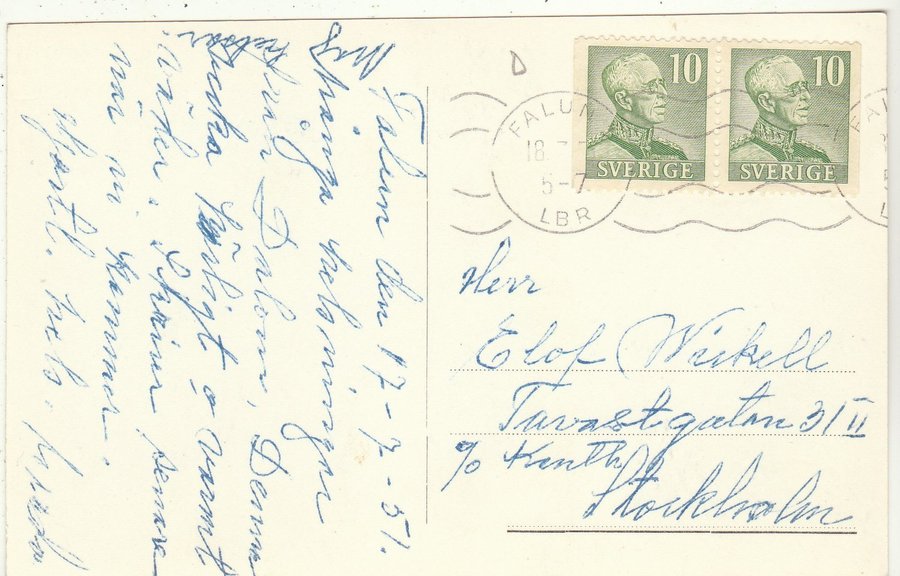 Falun den 17-7-51.
Många hälsningar
från Dalom, Denna
vecka soligt o varmt
väder. Skriver senare
när ni kommer.
Hjärtl. hels.
10
10
SVERIGE
SVERIGE
FALUN
18.
5-7
LBR
Herr
Elof Wickell
Tavastgatan 31 II
c/o Kenth
Stockholm